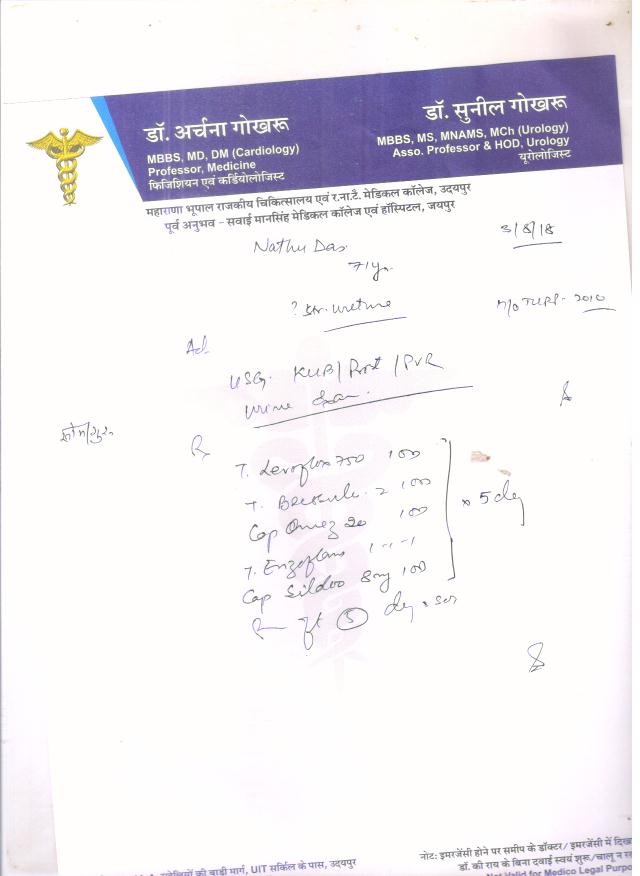 डॉ. अर्चना गोखरू
MBBS, MD, DM (Cardiology)
Professor, Medicine
फिजिशियन एवं कर्डियोलोजिस्ट
डॉ. सुनील गोखरू
MBBS, MS, MNAMS, MCh (Urology)
Asso. Professor & HOD, Urology
यूरोलोजिस्ट
महाराणा भूपाल राजकीय चिकित्सालय एवं र.ना.टै. मेडिकल कॉलेज, उदयपुर
पूर्व अनुभव – सवाई मानसिंह मेडिकल कॉलेज एवं हॉस्पिटल, जयपुर
Nathu Das
3/8/18
71y
? Str. urethra
H/O TURP - 2010
Ad
USG. KUB/Prost/PVR
Urine
Rx
T. Levoflox 750 1 OD
T. 1 OD
Cap Omez 20 1 OD
T. Enzoflam 1-1-1
Cap Sildoo 8mg 1 OD
x 5 day
5
नोट: इमरजेंसी होने पर समीप के डॉक्टर/ इमरजेंसी में
डॉ. की राय के बिना दवाई स्वयं शुरू/चालू न
बाड़ी मार्ग, UIT सर्किल के पास, उदयपुर
Not Valid for Medico Legal